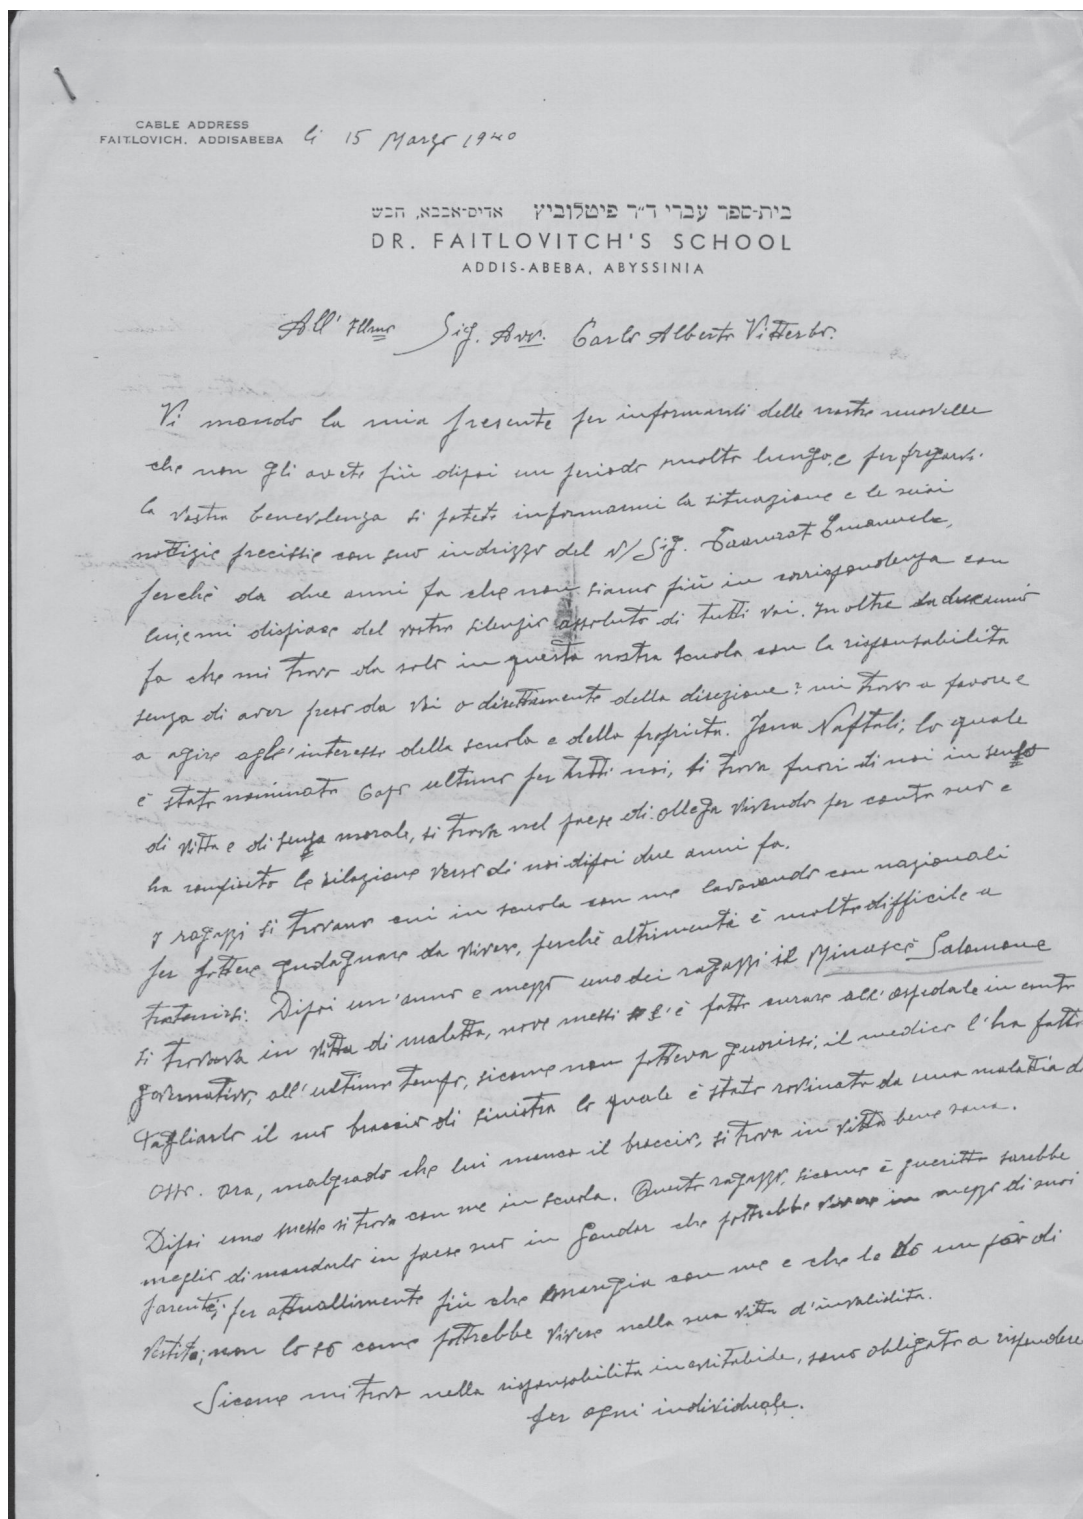 CABLE ADDRESS
FAITLOVICH, ADDISABEBA li 15 Marzo 1940
בית-ספר עברי ד״ר פיטלוביץ אדיס-אבבא, חבש
DR. FAITLOVITCH'S SCHOOL
ADDIS-ABEBA, ABYSSINIA
All' Illmo Sig. Avv. Carlo Alberto Vitterbo.
Vi mando la mia presente per informarvi delle nostre nuovelle
che non gli avete più dipoi un periodo molto lungo, e per pregarvi
la vostra benevolenza si potete informarmi la situazione e le suoi
nottizie precissie con suo indrizzo del v/ Sig. Taamrat Emanuele,
perchè da due anni fa che non siamo più in corrispondenza con
lui; e mi dispiace del vostro silenzio assoluto di tutti voi. Inoltre da due anni
fa che mi trovo da solo in questa nostra scuola con la risponsabilita
senza di aver preso da voi o direttamente della direzione? mi trovo a favore e
a agire agl'interesse della scuola e della proprieta. Jona Naftali; lo quale
è stato nominato Capo ultimo per tutti noi, si trova fuori di noi in senso
di vitta e di senza morale, si trova nel paese di ollega vivendo per conto suo e
ha le rilazione verso di noi dipoi due anni fa.
I ragazzi si trovano cui in scuola con me lavorando con nazionali
per pottere guadagnare da vivere, perchè altrimenti è molto difficile a
tratenirsi. Dipoi un'anno e mezzo uno dei ragazzi il Minascè Salomone
si trovava in vitta di malatta, nove messi s'è fatto curare all'ospedale in conto
govrnativo, all'ultimo tempo, sicome non potteva guorirsi; il medico l'ha fatto
tagliarlo il suo braccio di sinistra lo quale è stato rovinato da una malattia di
osso. ora, malgrado che lui manca il braccio, si trova in vitta bene sana.
Dipoi uno messe si trova con me in scuola. Questo ragazzo, sicome è gueritto sarebbe
meglio di mandarlo in paese suo in Gondar che pottrebbe vivere in mezzo di suoi
parenti; per attuallimente più che mangia con me e che le do un pò di
vestito; non lo so come pottrebbe vivere nella sua vitta d'invalidita.
Sicome mi trovo nella risponsabilita inevitabide, sono obligato a rispondere
per ogni individuale.